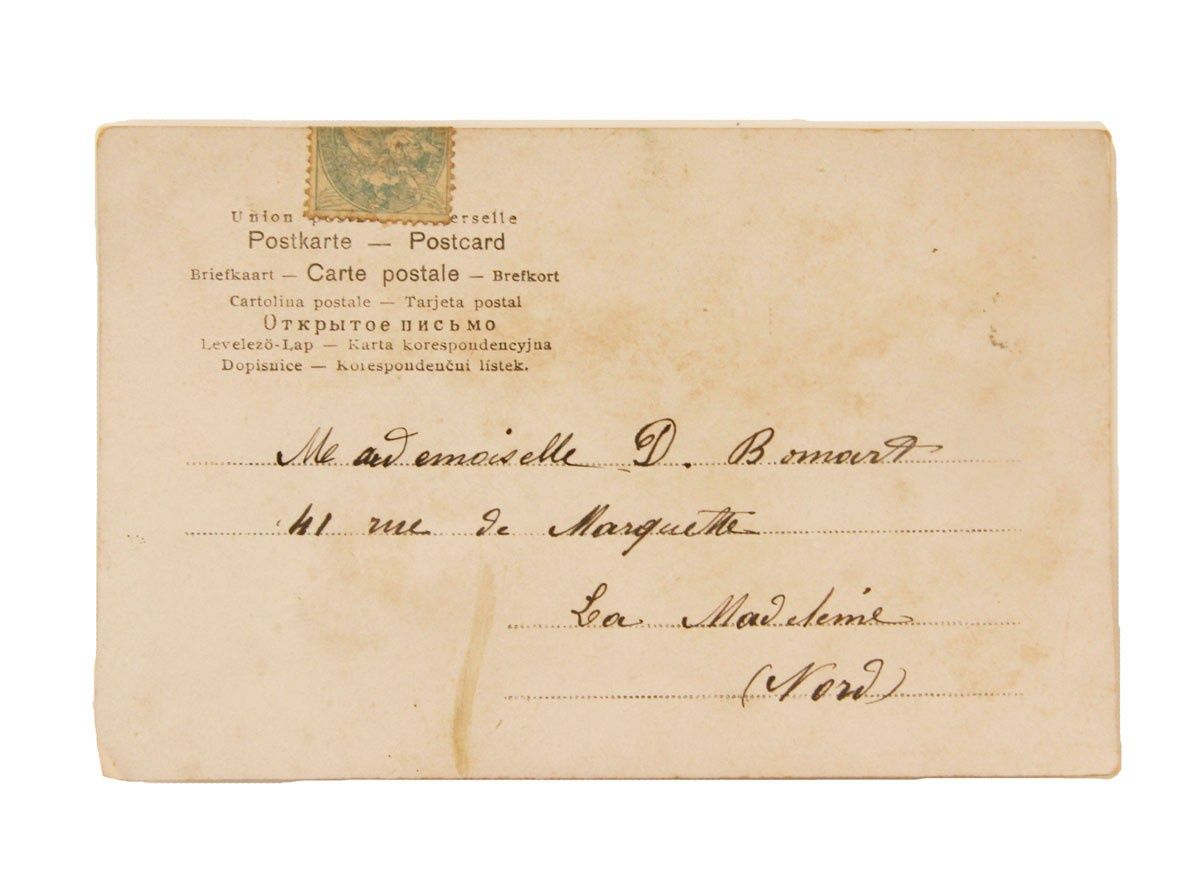 Union erselle
Postkarte — Postcard
Briefkaart — Carte postale — Brefkort
Cartolina postale — Tarjeta postal
Открытое письмо
Levelező-Lap — Karta korespondencyjna
Dopisnice — Korespondenční lístek.
Mademoiselle D. Bomart
41 rue de Marquette
La Madeleine
(Nord)